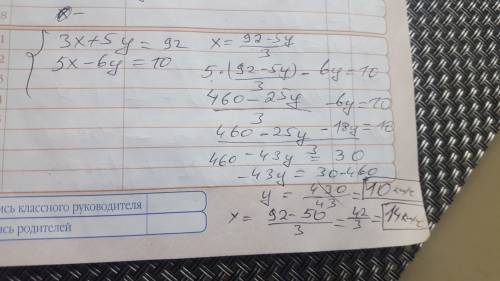 x –
3x+5y = 92 x = (92-5y)/3
5x-6y = 10 5·(92-5y)/3 - 6y = 10
(460-25y)/3 - 6y = 10
(460-25y - 18y)/3 = 10
460 - 43y = 30
-43y = 30-460
y = 430/43 = 10
x = (92-50)/3 = 42/3 = 14
ись классного руководителя
ись родителей